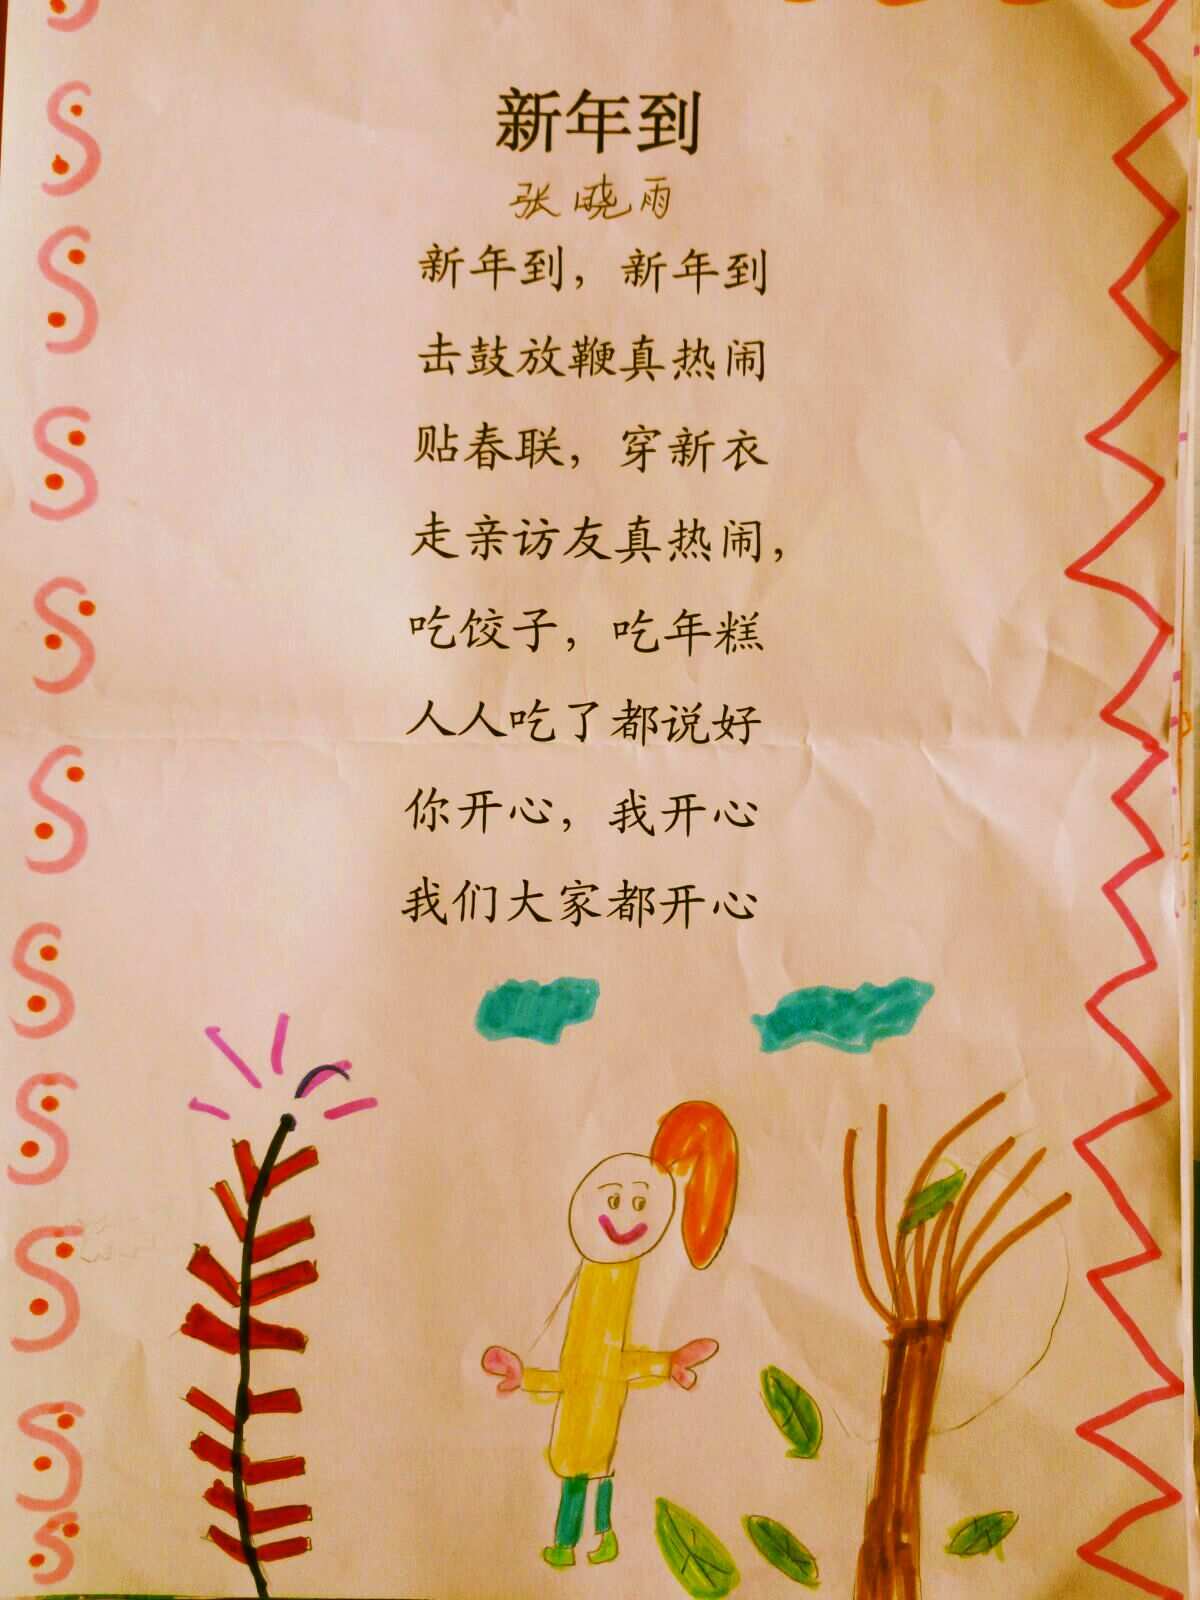 新年到
张晓雨
新年到，新年到
击鼓放鞭真热闹
贴春联，穿新衣
走亲访友真热闹，
吃饺子，吃年糕
人人吃了都说好
你开心，我开心
我们大家都开心